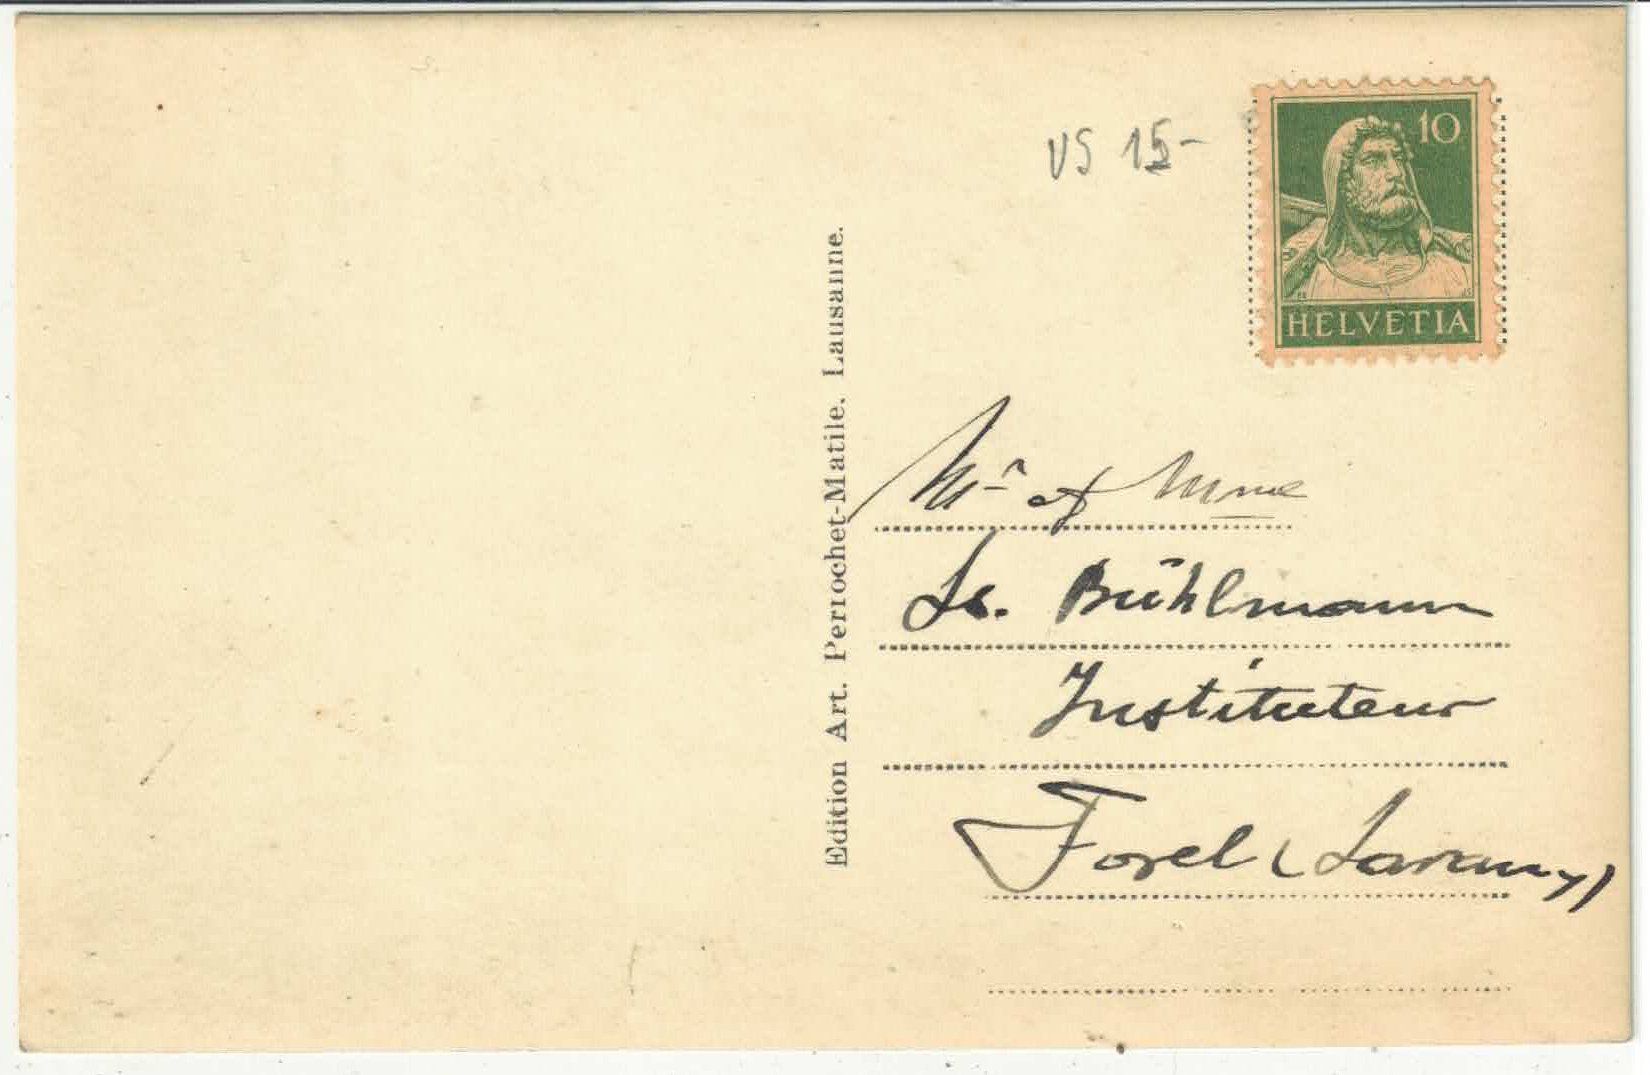 VS 15-
10
HELVETIA
Edition Art. Perrochet-Matile. Lausanne.
Mr et Mme
Ls. Bühlmann
Instituteur
Forel (Lavaux)